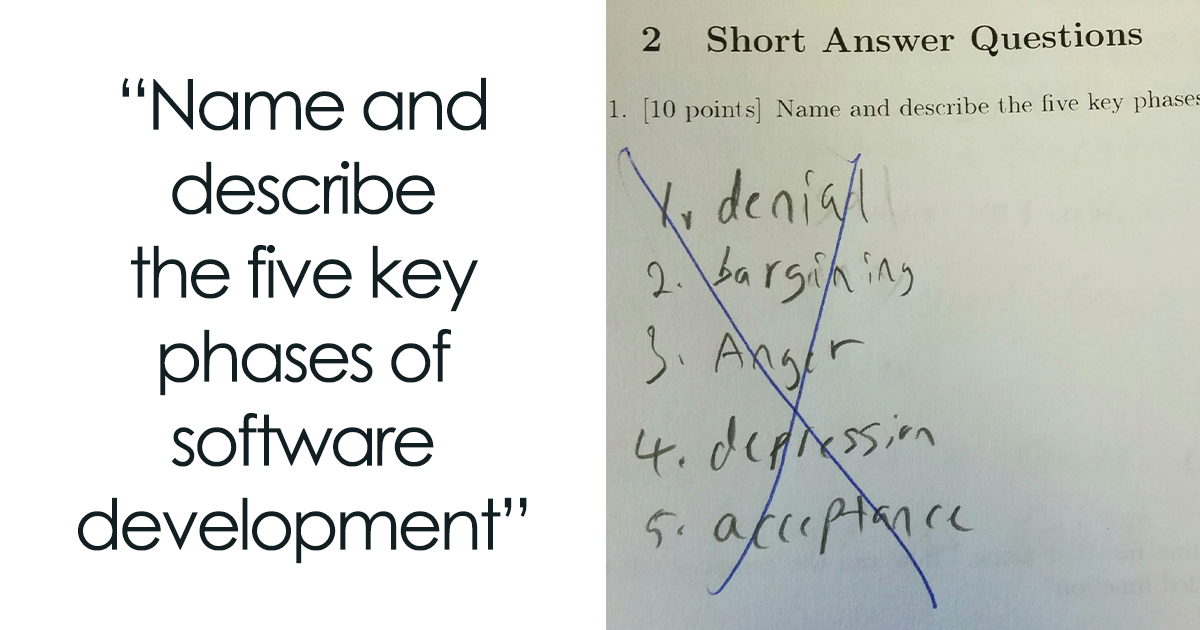 “Name and
describe
the five key
phases of
software
development”
2 Short Answer Questions
1. [10 points] Name and describe the five key phases
1. denial
2. bargining
3. Anger
4. depression
5. acceptance